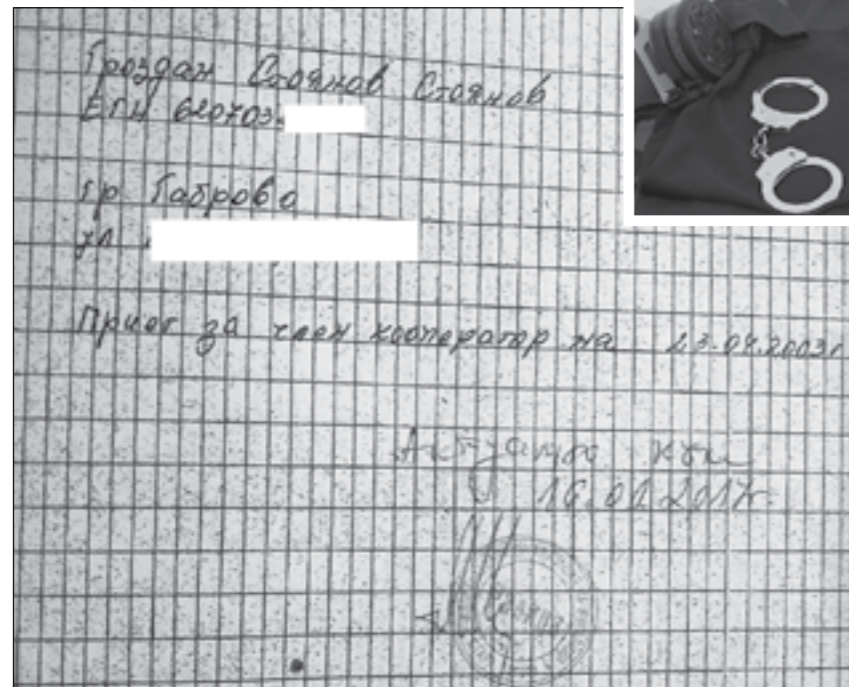 Гроздан Стоянов Стоянов
ЕГН 620703
гр Габрово
ул
Приет за член кооператор на 23.04.2003г
Актуално към
16.01.2017г.